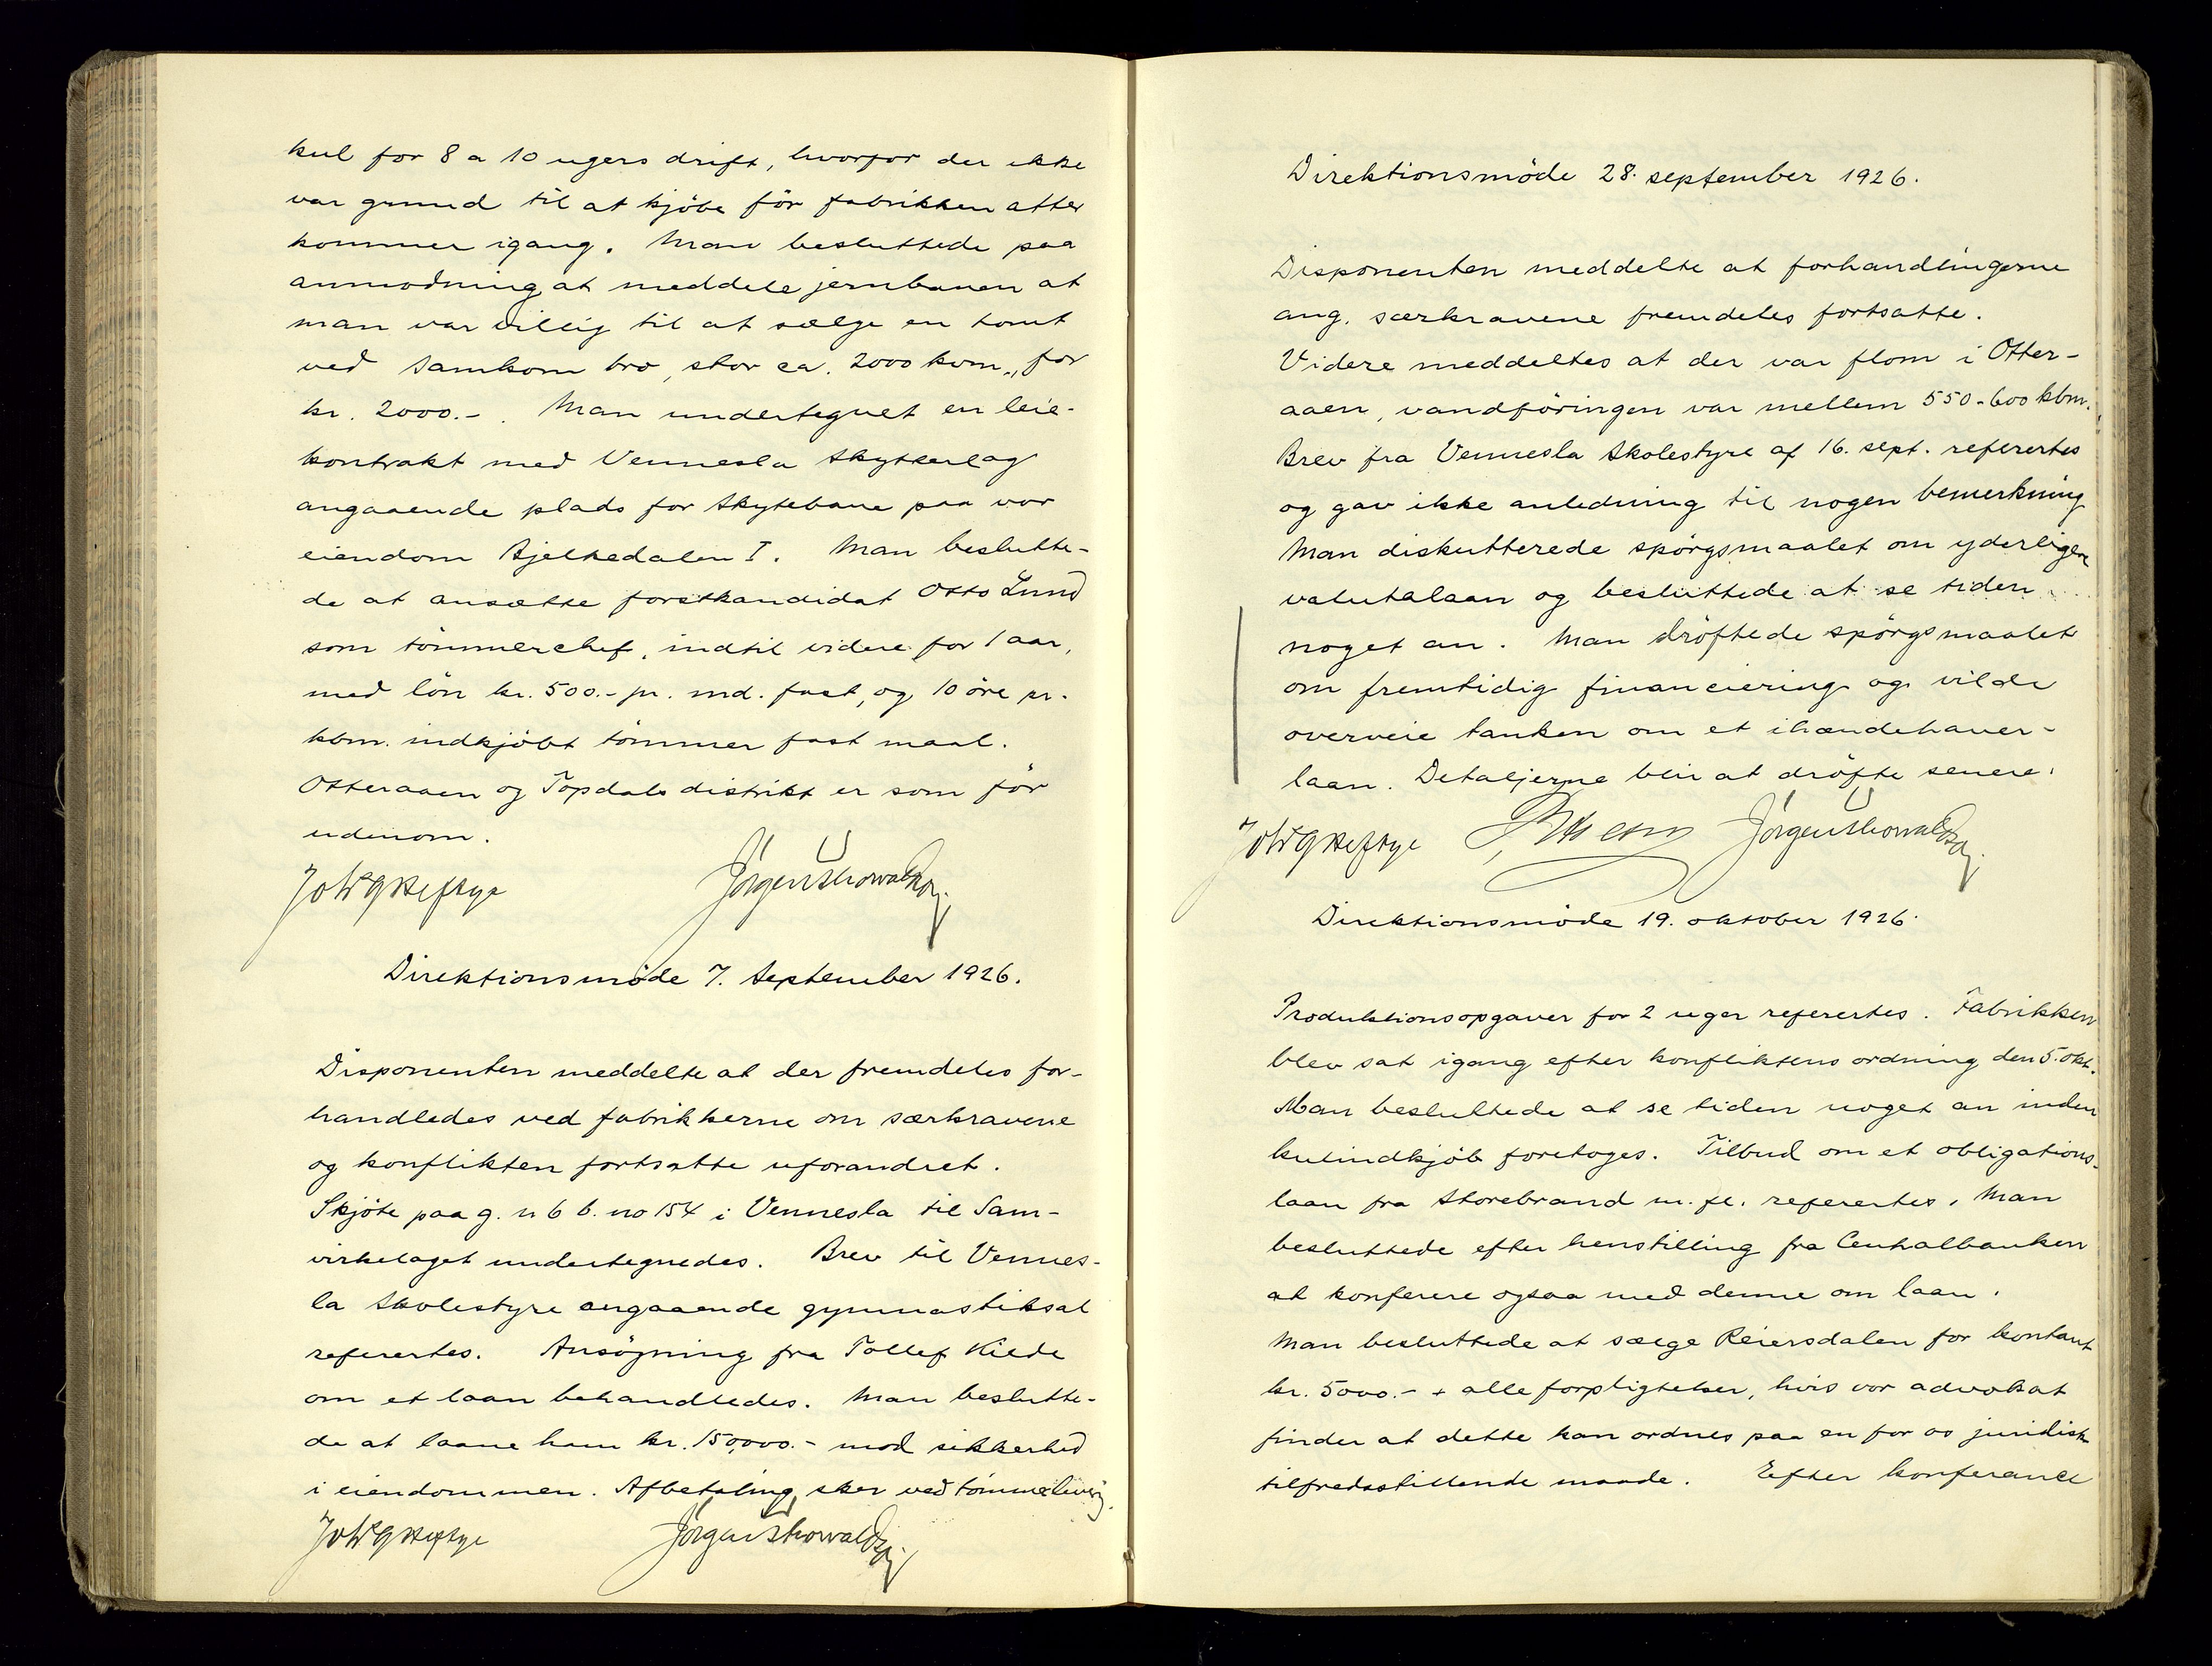 kul for 8 a 10 ugers drift, hvorfor der ikke
var grund til at kjöbe för fabrikken atter
kommer igang. Man besluttede paa
anmodning at meddele jernbanen at
man var villig til at sælge en tomt
ved Samkom bro, stor ca. 2000 kvm., for
kr. 2000.-. Man undertegnet en leie-
kontrakt med Vennesla Skytterlag
angaaende plads for Skytebane paa vor
eiendom Kjelkedalen I. Man beslutte-
de at ansætte forstkandidat Otto Lund
som tömmerchef, indtil videre for 1 aar,
med lön kr. 500.- pr. md. fast, og 10 öre pr.
kbm. indkjöbt tömmer fast maal.
Otteraaen og Topdals distrikt er som för
udenom.
Joh W G Kefstye Jörgen Thorvaldsen
Direktionsmöde 7. September 1926.
Disponenten meddelte at der fremdeles for-
handledes ved fabrikkerne om særkravene
og konflikten fortsatte uforandret.
Skjöte paa g. n 6 b. no 154 i Vennesla til Sam-
virkelaget undertegnedes. Brev til Vennes-
la Skolestyre angaaende gymnastiksal
refererTes. Ansögning fra Tollef Kilde
om et laan behandledes. Man beslutte-
de at laane ham kr. 150,000.- mod sikkerhed
i eiendommen. Afbetaling sker ved tömmerlevering.
Jörgen Thorvaldsen
Direktionsmöde 28. september 1926.
Disponenten meddelte at forhandlingerne
ang. særkravene fremdeles fortsatte.
Videre meddeltes at der var flom i Otter-
aaen, vandföringen var mellem 550-600 kbm.
Brev fra Vennesla Skolestyre af 16. sept. referertes
og gav ikke anledning til nogen bemerkning
Man diskutterede spörgsmaalet om yderligere
valutalaan og besluttede at se tiden
noget an. Man dröftede spörgsmaalet
om fremtidig financiering og vilde
overveie tanken om et ihændehaver-
laan. Detaljerne blir at dröfte senere.
Jörgen Thorvaldsen
Direktionsmöde 19. oktober 1926.
Produktionsopgaver for 2 uger referertes. Fabrikken
blev sat igang efter konfliktens ordning den 5. okt.
Man besluttede at se tiden noget an inden
kulindkjöb foretoges. Tilbud om et obligations-
laan fra Storebrand m. fl. referertes. Man
besluttede efter henstilling fra Centralbanken
at konferere ogsaa med denne om laan.
Man besluttede at sælge Reiersdalen for kontant
kr. 5000.- + alle forpligtelser, hvis vor advokat
finder at dette kan ordnes paa en for os juridisk
tilfredsstillende maade. Efter konferance